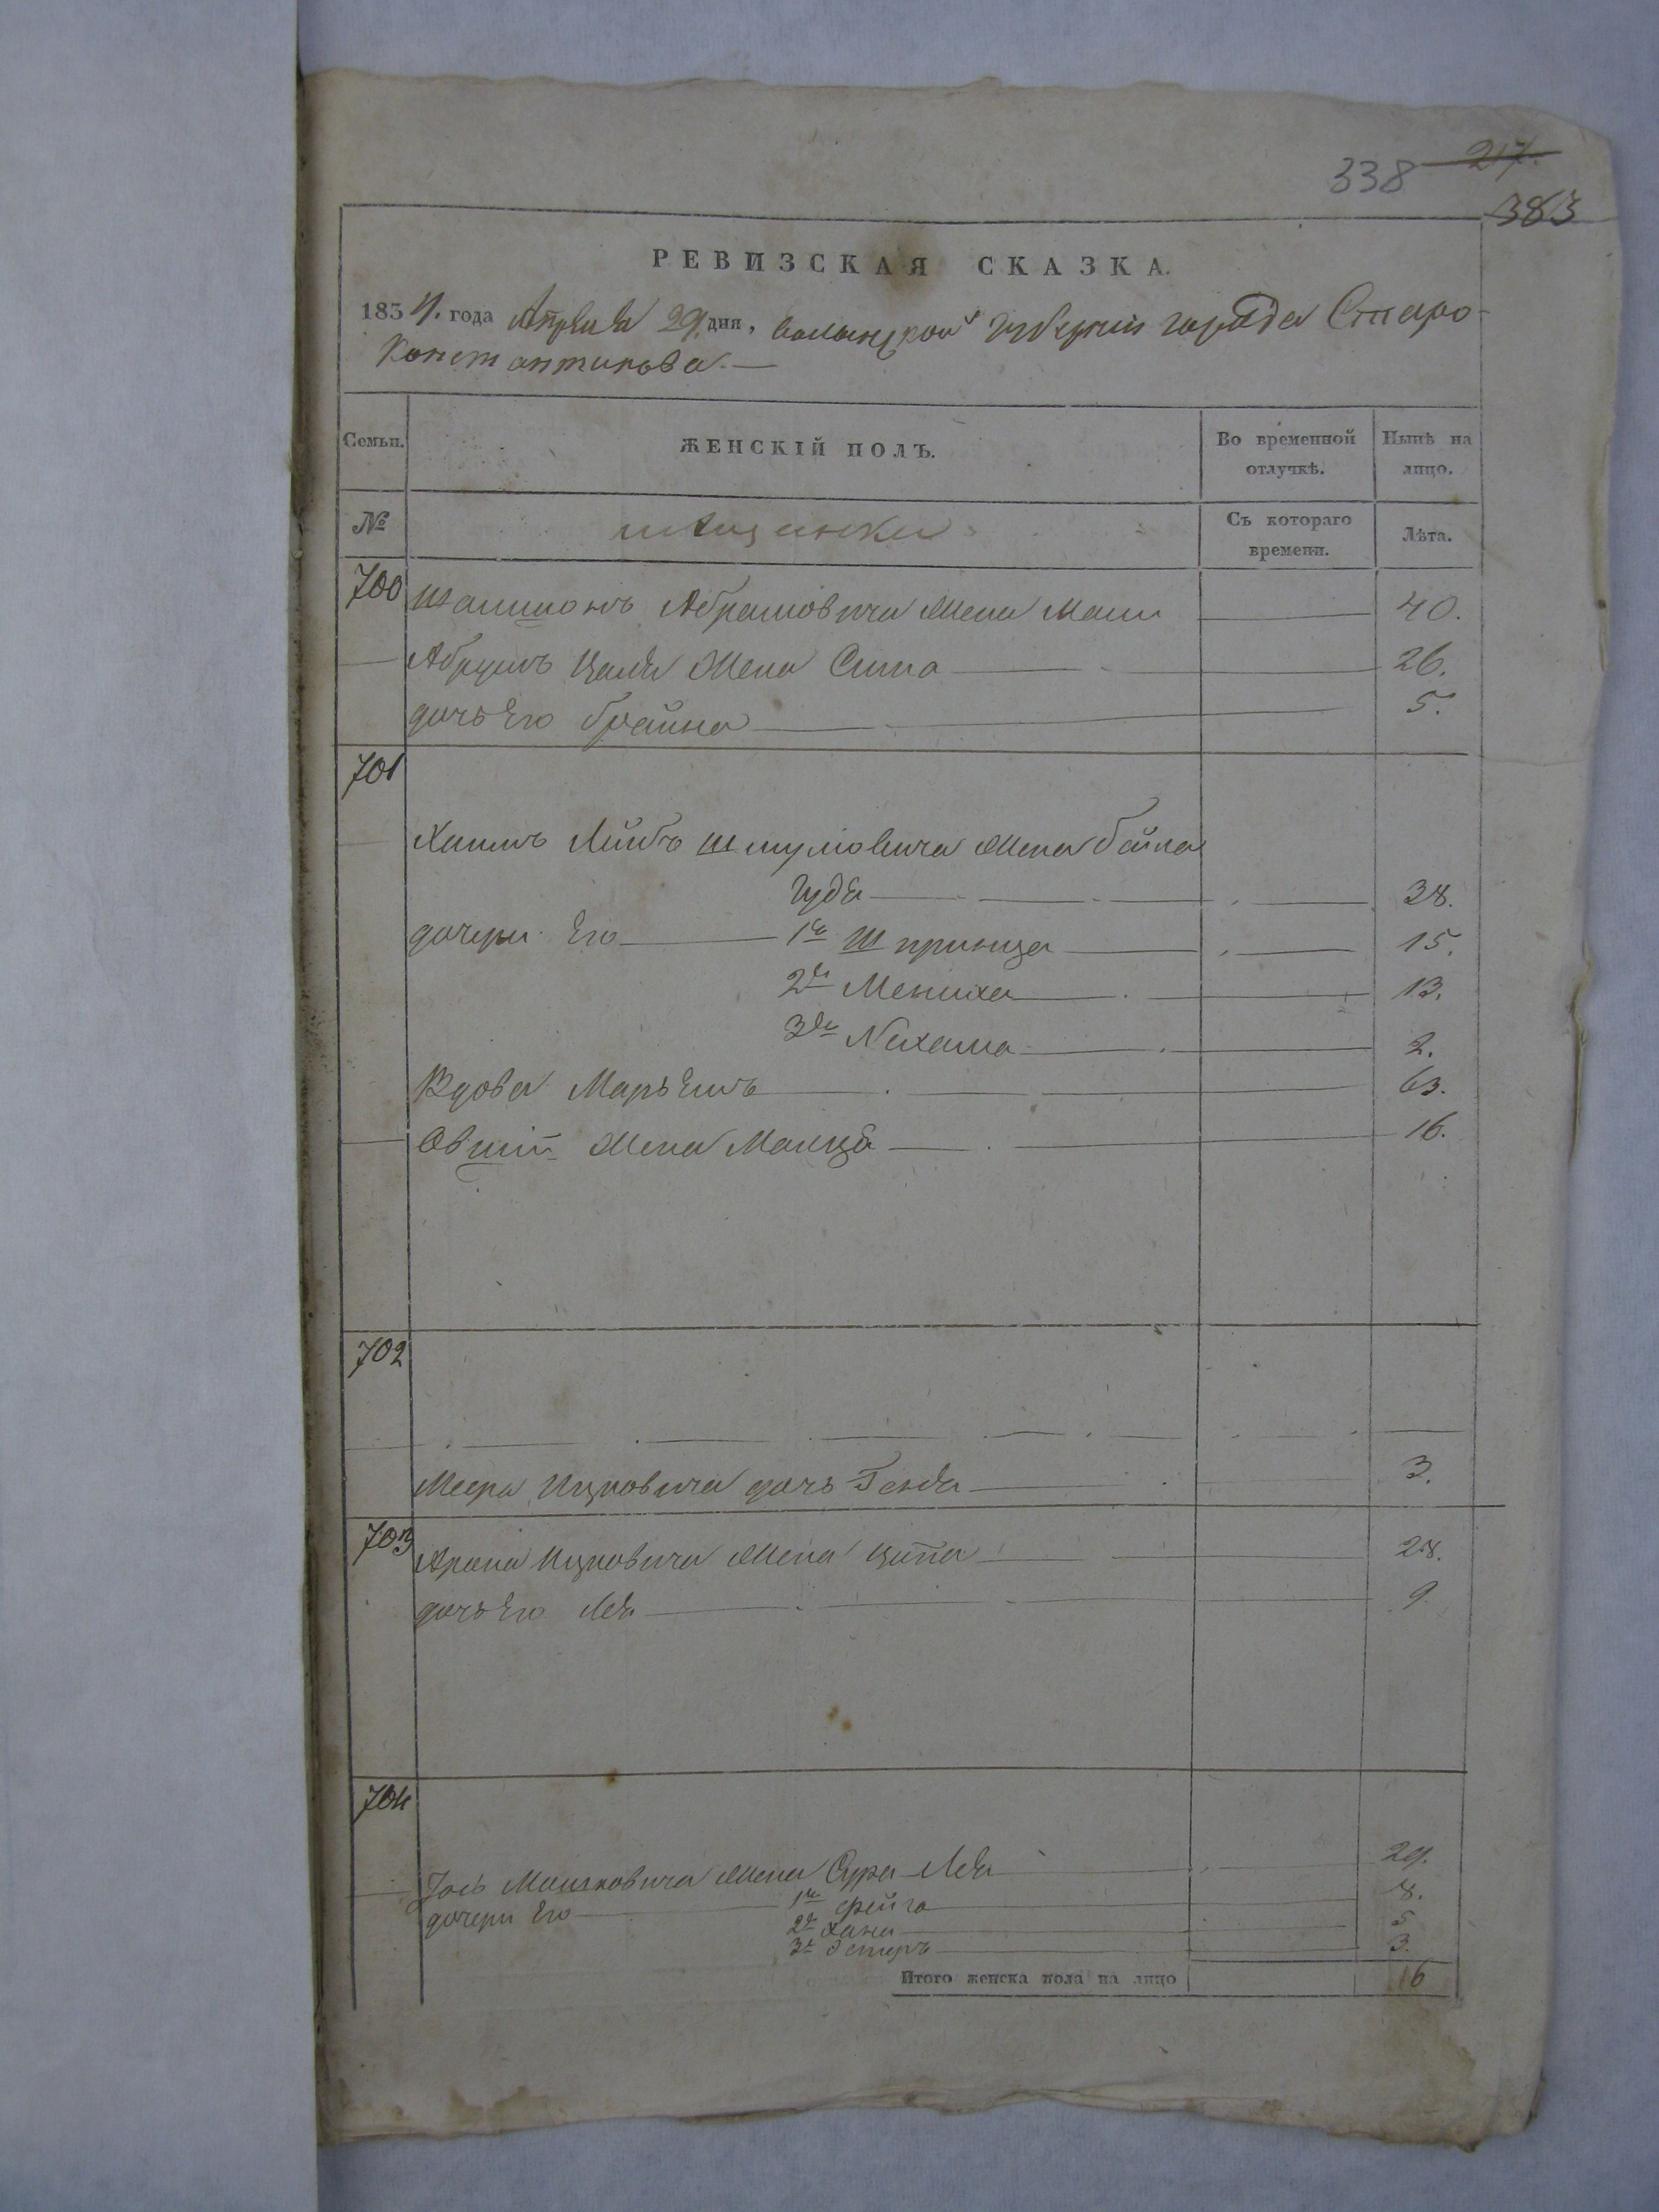 338 217.
383
РЕВИЗСКАЯ СКАЗКА.
1834. года Апреля 29. дня, волынской губернии города Старо-
константинова.—
Семьи. ЖЕНСКІЙ ПОЛЪ. Во временной отлучкѣ. Нынѣ на лицо.
№ мещанки Съ котораго времени. Лѣта.
700 Абрамовича жена 40.
жена Сима 26.
дочь его брайна 5.
701
Хаимъ Лейбъ Шмулиовича жена бейла
Гудя 38.
дочери его 1я Шпринца 15.
2я Мениха 13.
3я Нехама 2.
Вдова Марьемъ 63.
жена Малця 16.
702
Меера Ицковича дочь Генда 3.
703 Арона Ицковича жена ципа 28.
дочь его Лея 9.
704
Іось Мошковича жена Сура Лея 29.
дочери его 1я фейга 8.
2я Хана 5
3я Эстеръ 3.
Итого женска пола на лицо 16